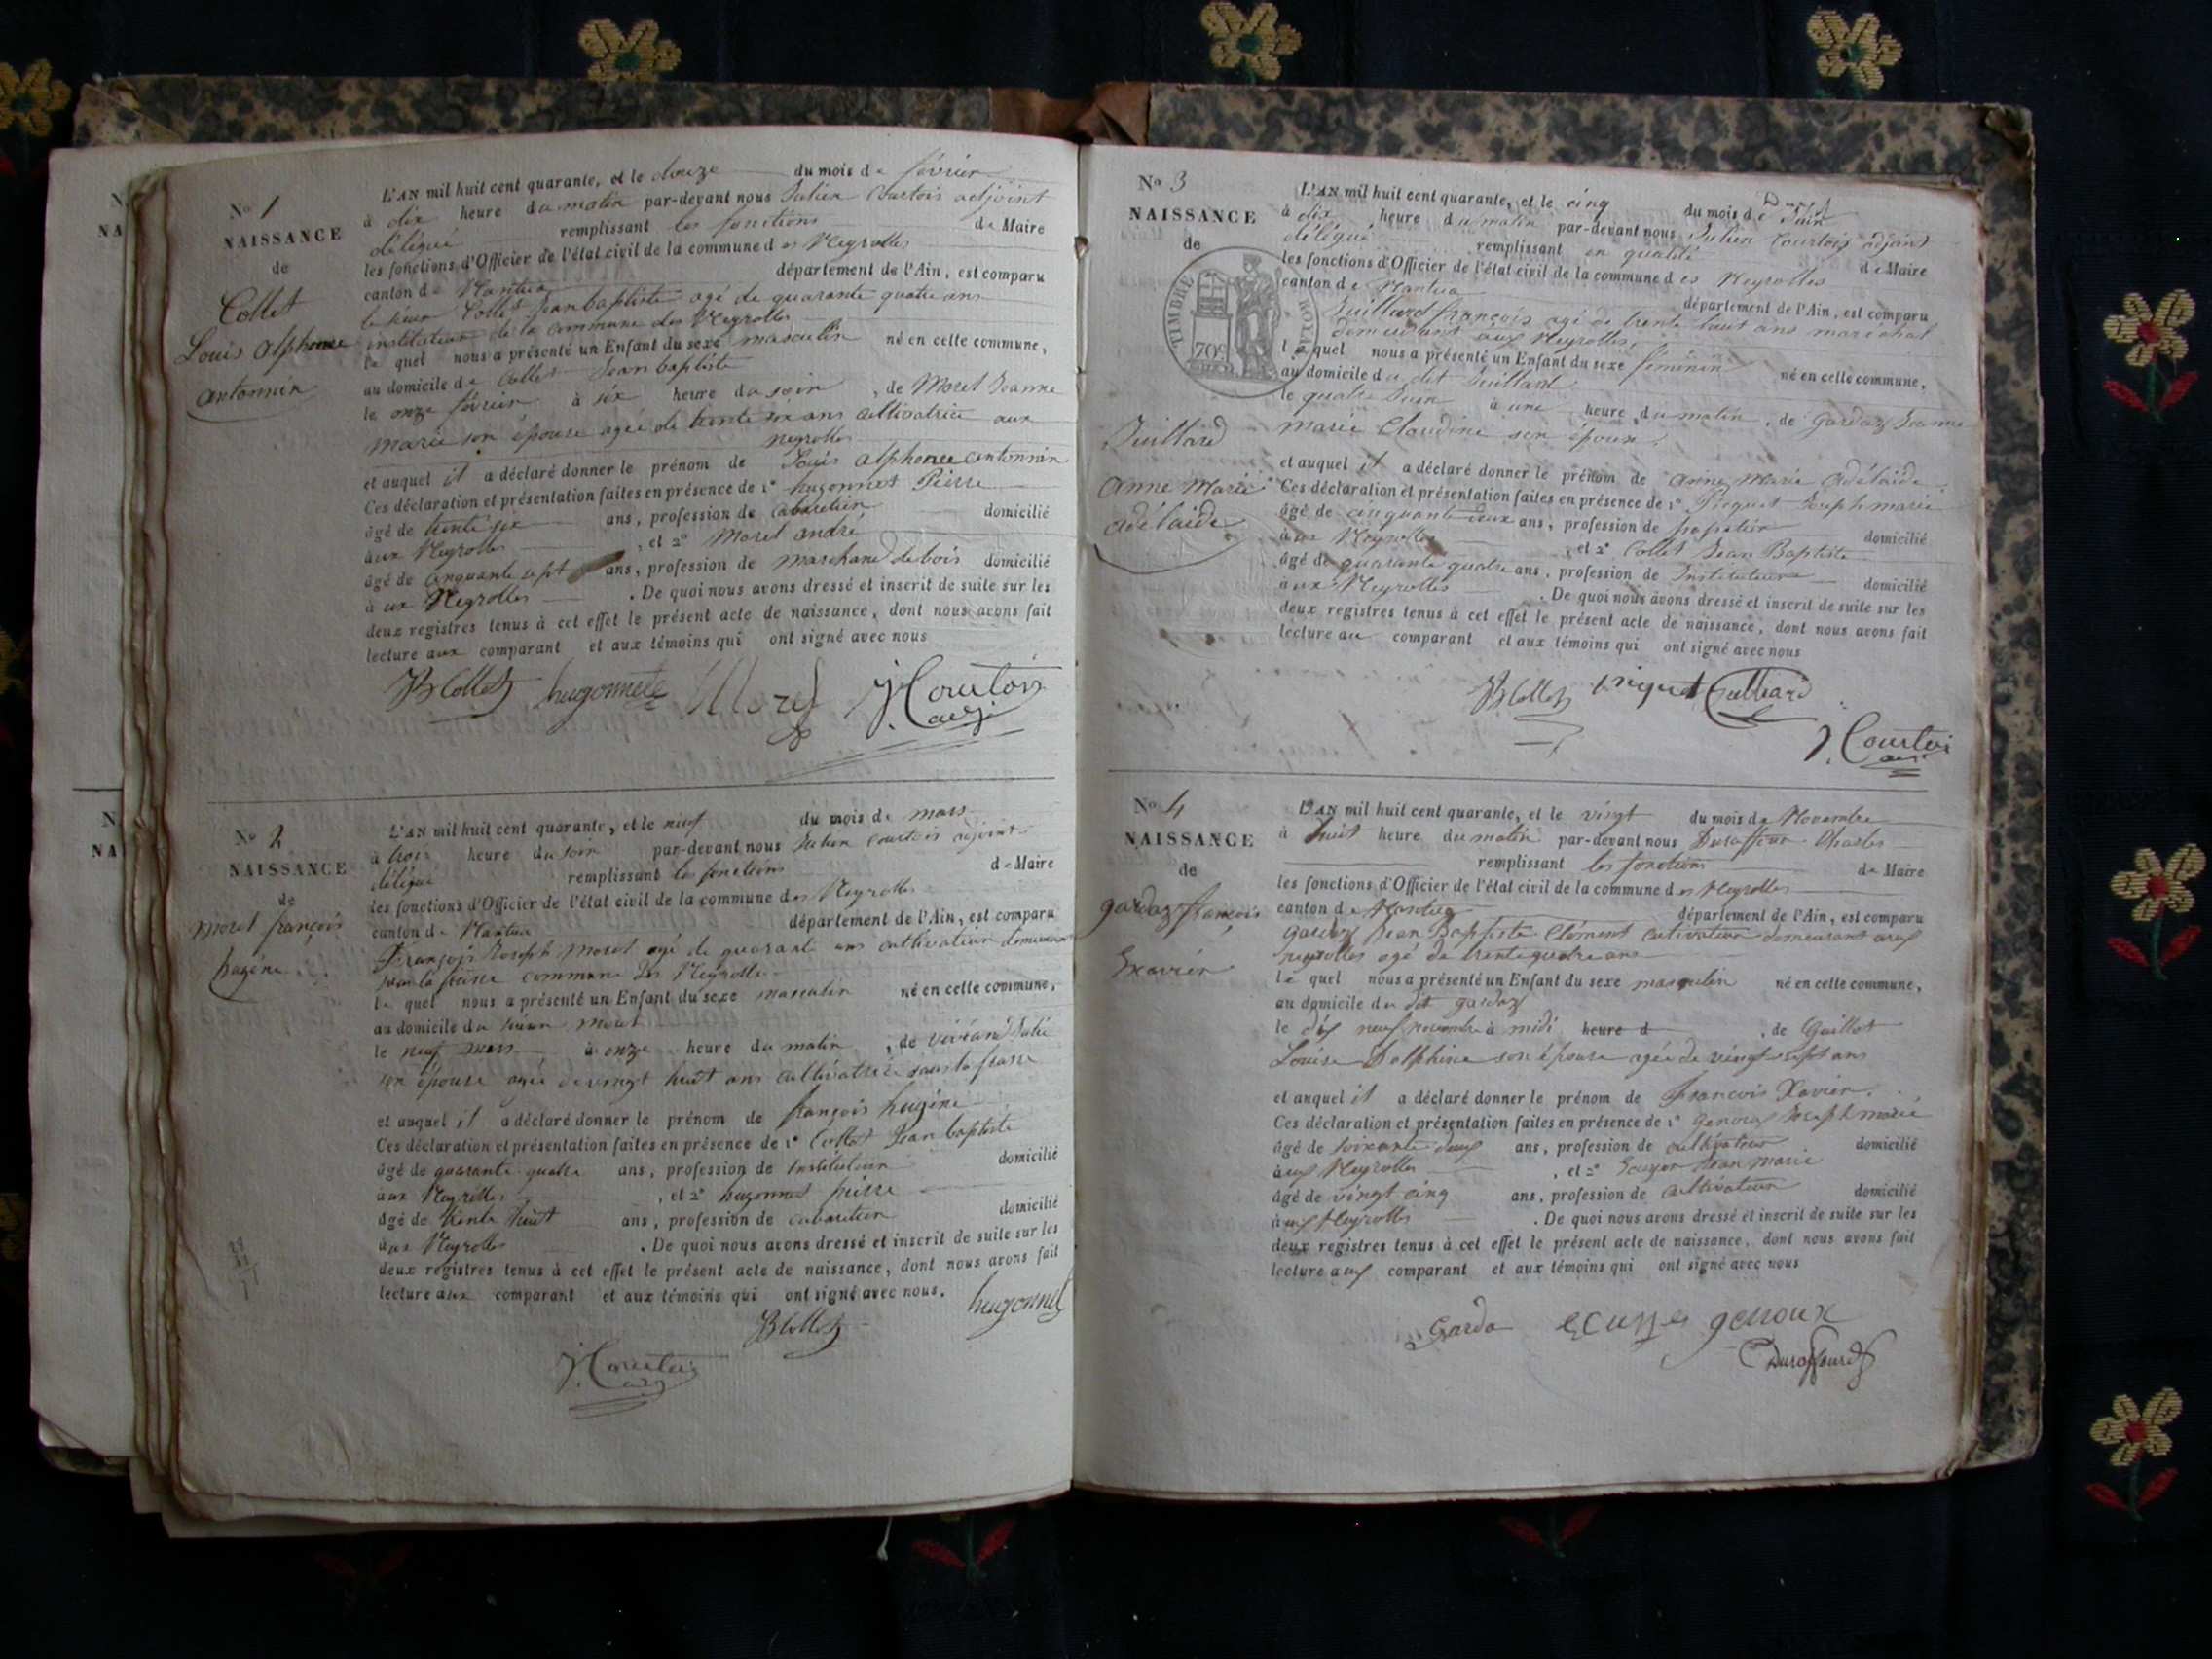 N
NA
N
NA
N° 1
NAISSANCE
de
Collet
Louis Alphonse
antonnin
L'AN mil huit cent quarante, et le douze du mois de février
à dix heure du matin par-devant nous Julien Courtois adjoint
délégué remplissant les fonctions de Maire
les fonctions d'Officier de l'état civil de la commune des Neyrolles
canton de Nantua département de l'Ain, est comparu
le sieur Collet Jean baptiste agé de quarante quatre ans
instituteur de la commune des Neyrolles
le quel nous a présenté un Enfant du sexe masculin né en cette commune,
au domicile de Collet Jean baptiste
le onze février à six heure du soir, de Moret Jeanne
marie son épouse agée de trente six ans cultivatrice aux
neyrolles
et auquel il a déclaré donner le prénom de Louis alphonse antonnin
Ces déclaration et présentation faites en présence de 1° hugonnet Pierre
âgé de trente six ans, profession de cabaretier domicilié
aux Neyrolles, et 2° Moret andré
âgé de cinquante sept ans, profession de marchand de bois domicilié
aux Neyrolles. De quoi nous avons dressé et inscrit de suite sur les
deux registres tenus à cet effet le présent acte de naissance, dont nous avons fait
lecture aux comparant et aux témoins qui ont signé avec nous
JB Collet hugonnet Moret J. Courtois
adj.
N° 2
NAISSANCE
de
moret françois
hugéne
L'AN mil huit cent quarante, et le neuf du mois de mars
à trois heure du soir par-devant nous Julien Courtois adjoint
délégué remplissant les fonctions de Maire
les fonctions d'Officier de l'état civil de la commune des Neyrolles
canton de Nantua département de l'Ain, est comparu
François Joseph Moret agé de quarante ans cultivateur demeurant
sur la commune des Neyrolles
le quel nous a présenté un Enfant du sexe masculin né en cette commune,
au domicile du sieur Moret
le neuf mars à onze heure du matin, de vivian Julie
son épouse agée de vingt huit ans cultivatrice
et auquel il a déclaré donner le prénom de françois hugéne
Ces déclaration et présentation faites en présence de 1° Collet Jean baptiste
âgé de quarante quatre ans, profession de Instituteur domicilié
aux Neyrolles, et 2° hugonnet pierre
âgé de trente huit ans, profession de cabaretier domicilié
aux Neyrolles. De quoi nous avons dressé et inscrit de suite sur les
deux registres tenus à cet effet le présent acte de naissance, dont nous avons fait
lecture aux comparant et aux témoins qui ont signé avec nous.
JB Collet hugonnet
J. Courtois
adj
N° 3
NAISSANCE
de
TIMBRE ROYAL
70c
Juillard
Anne Marie
adélaïde
L'AN mil huit cent quarante, et le cinq du mois de Juin
à dix heure du matin par-devant nous Julien Courtois adjoint
délégué remplissant en qualité de Maire
les fonctions d'Officier de l'état civil de la commune des Neyrolles
canton de Nantua département de l'Ain, est comparu
Juillard françois agé de trente huit ans maréchal
demeurant aux Neyrolles,
lequel nous a présenté un Enfant du sexe féminin né en cette commune,
au domicile du dit Juillard
le quatre Juin à une heure du matin, de Gardaz Jeanne
marie Claudine son épouse,
et auquel il a déclaré donner le prénom de anne Marie Adélaïde
Ces déclaration et présentation faites en présence de 1° Piquet Joseph marie
âgé de cinquante deux ans, profession de papetier domicilié
aux Neyrolles, et 2° Collet Jean Baptiste
âgé de quarante quatre ans, profession de Instituteur domicilié
aux Neyrolles. De quoi nous avons dressé et inscrit de suite sur les
deux registres tenus à cet effet le présent acte de naissance, dont nous avons fait
lecture au comparant et aux témoins qui ont signé avec nous
JB Collet piquet Juilliard
J. Courtois
adj
N° 4
NAISSANCE
de
gardaz françois
Exavier
L'AN mil huit cent quarante, et le vingt du mois de Novembre
à huit heure du matin par-devant nous Duraffour Charles
remplissant les fonctions de Maire
les fonctions d'Officier de l'état civil de la commune des Neyrolles
canton de Nantua département de l'Ain, est comparu
Gardaz Jean Baptiste Clément cultivateur demeurant aux
neyrolles agé de trente quatre ans
le quel nous a présenté un Enfant du sexe masculin né en cette commune,
au domicile du dit gardaz
le dix neuf novembre à midi heure d, de Guillot
Louise Delphine son épouse agée de vingt sept ans
et auquel il a déclaré donner le prénom de françois Xavier.
Ces déclaration et présentation faites en présence de 1° Genoux Joseph marie
âgé de soixante deux ans, profession de cultivateur domicilié
aux Neyrolles, et 2° Jean Marie
âgé de vingt cinq ans, profession de cultivateur domicilié
aux Neyrolles. De quoi nous avons dressé et inscrit de suite sur les
deux registres tenus à cet effet le présent acte de naissance, dont nous avons fait
lecture aux comparant et aux témoins qui ont signé avec nous
Garda genoux
Duraffourd